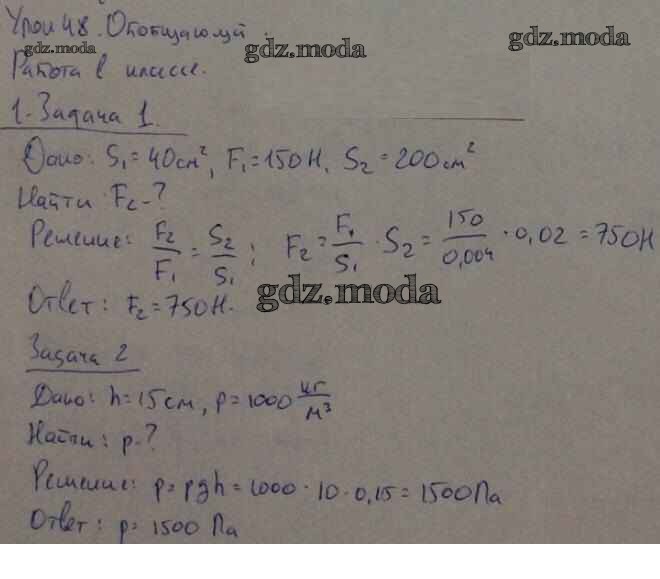 Урок 48. Обобщающий.
gdz.moda gdz.moda gdz.moda
Работа в классе.
1. Задача 1.
Дано: S₁ = 40 см², F₁ = 150 Н, S₂ = 200 см²
Найти F₂ - ?
Решение: F₂/F₁ = S₂/S₁; F₂ = F₁/S₁ · S₂ = 150/0,004 · 0,02 = 750 Н
Ответ: F₂ = 750 Н.
gdz.moda
Задача 2
Дано: h = 15 см, ρ = 1000 кг/м³
Найти: p - ?
Решение: p = ρgh = 1000 · 10 · 0,15 = 1500 Па
Ответ: p = 1500 Па